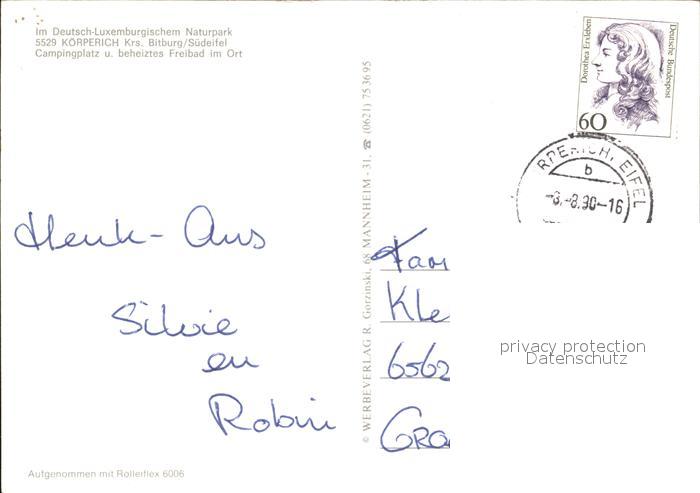 Im Deutsch-Luxemburgischem Naturpark
5529 KÖRPERICH Krs. Bitburg/Südeifel
Campingplatz u. beheiztes Freibad im Ort
Dorothea Erxleben
Deutsche Bundespost
60
RPERICH, EIFEL
b
-8.-8.90-16
© WERBEVERLAG R. Gorzinski, 68 MANNHEIM - 31, ☎ (0621) 75 36 95
Henk - Ans
Silvie
en
Robin
Fam
Kle
6562
Gro
privacy protection
Datenschutz
Aufgenommen mit Rolleiflex 6006